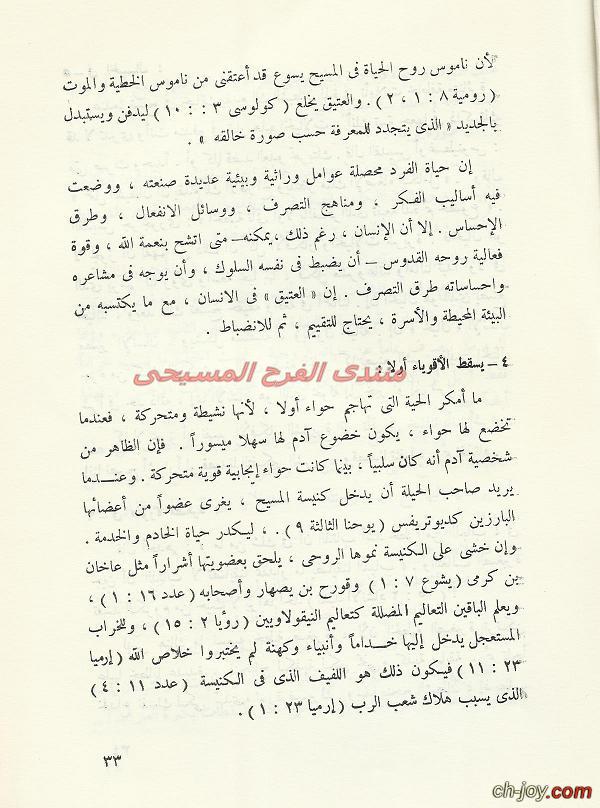 لأن ناموس روح الحياة فى المسيح يسوع قد أعتقنى من ناموس الخطية والموت
( رومية ٨ : ١ ، ٢ ) . والعتيق يخلع ( كولوسى ٣ : : ١٠ ) ليدفن ويستبدل
بالجديد « الذى يتجدد للمعرفة حسب صورة خالقه » .
إن حياة الفرد محصلة عوامل وراثية وبيئية عديدة صنعته ، ووضعت
فيه أساليب الفكر ، ومناهج التصرف ، ووسائل الانفعال ، وطرق
الإحساس . إلا أن الإنسان ، رغم ذلك ، يمكنه – متى اتشح بنعمة الله ، وقوة
فعالية روحه القدوس – أن يضبط فى نفسه السلوك ، وأن يوجه فى مشاعره
واحساساته طرق التصرف . إن « العتيق » فى الانسان ، مع ما يكتسبه من
البيئة المحيطة والأسرة ، يحتاج للتقييم ، ثم للانضباط .
٤ – يسقط الأقوياء أولا :
منتدى الفرح المسيحى
ما أمكر الحية التى تهاجم حواء أولا ، لأنها نشيطة ومتحركة ، فعندما
تخضع لها حواء ، يكون خضوع آدم لها سهلا ميسوراً . فإن الظاهر من
شخصية آدم أنه كان سلبياً ، بينما كانت حواء إيجابية قوية متحركة . وعندما
يريد صاحب الحيلة أن يدخل كنيسة المسيح ، يغرى عضواً من أعضائها
البارزين كديوتريفس ( يوحنا الثالثة ٩ ) . ، ليكدر حياة الخادم والخدمة .
وإن خشى على الكنيسة نموها الروحى ، يلحق بعضويتها أشراراً مثل عاخان
بن كرمى ( يشوع ٧ : ١ ) وقورح بن يصهار وأصحابه ( عدد ١٦ : ١ ) ،
ويعلم الباقين التعاليم المضللة كتعاليم النيقولاويين ( رؤيا ٢ : ١٥ ) ، وللخراب
المستعجل يدخل إليها خداماً وأنبياء وكهنة لم يختبروا خلاص الله ( إرميا
٢٣ : ١١ ) فيكون ذلك هو اللفيف الذى فى الكنيسة ( عدد ١١ : ٤ )
الذى يسبب هلاك شعب الرب ( إرميا ٢٣ : ١ ) .
٣٣
ch-joy.com